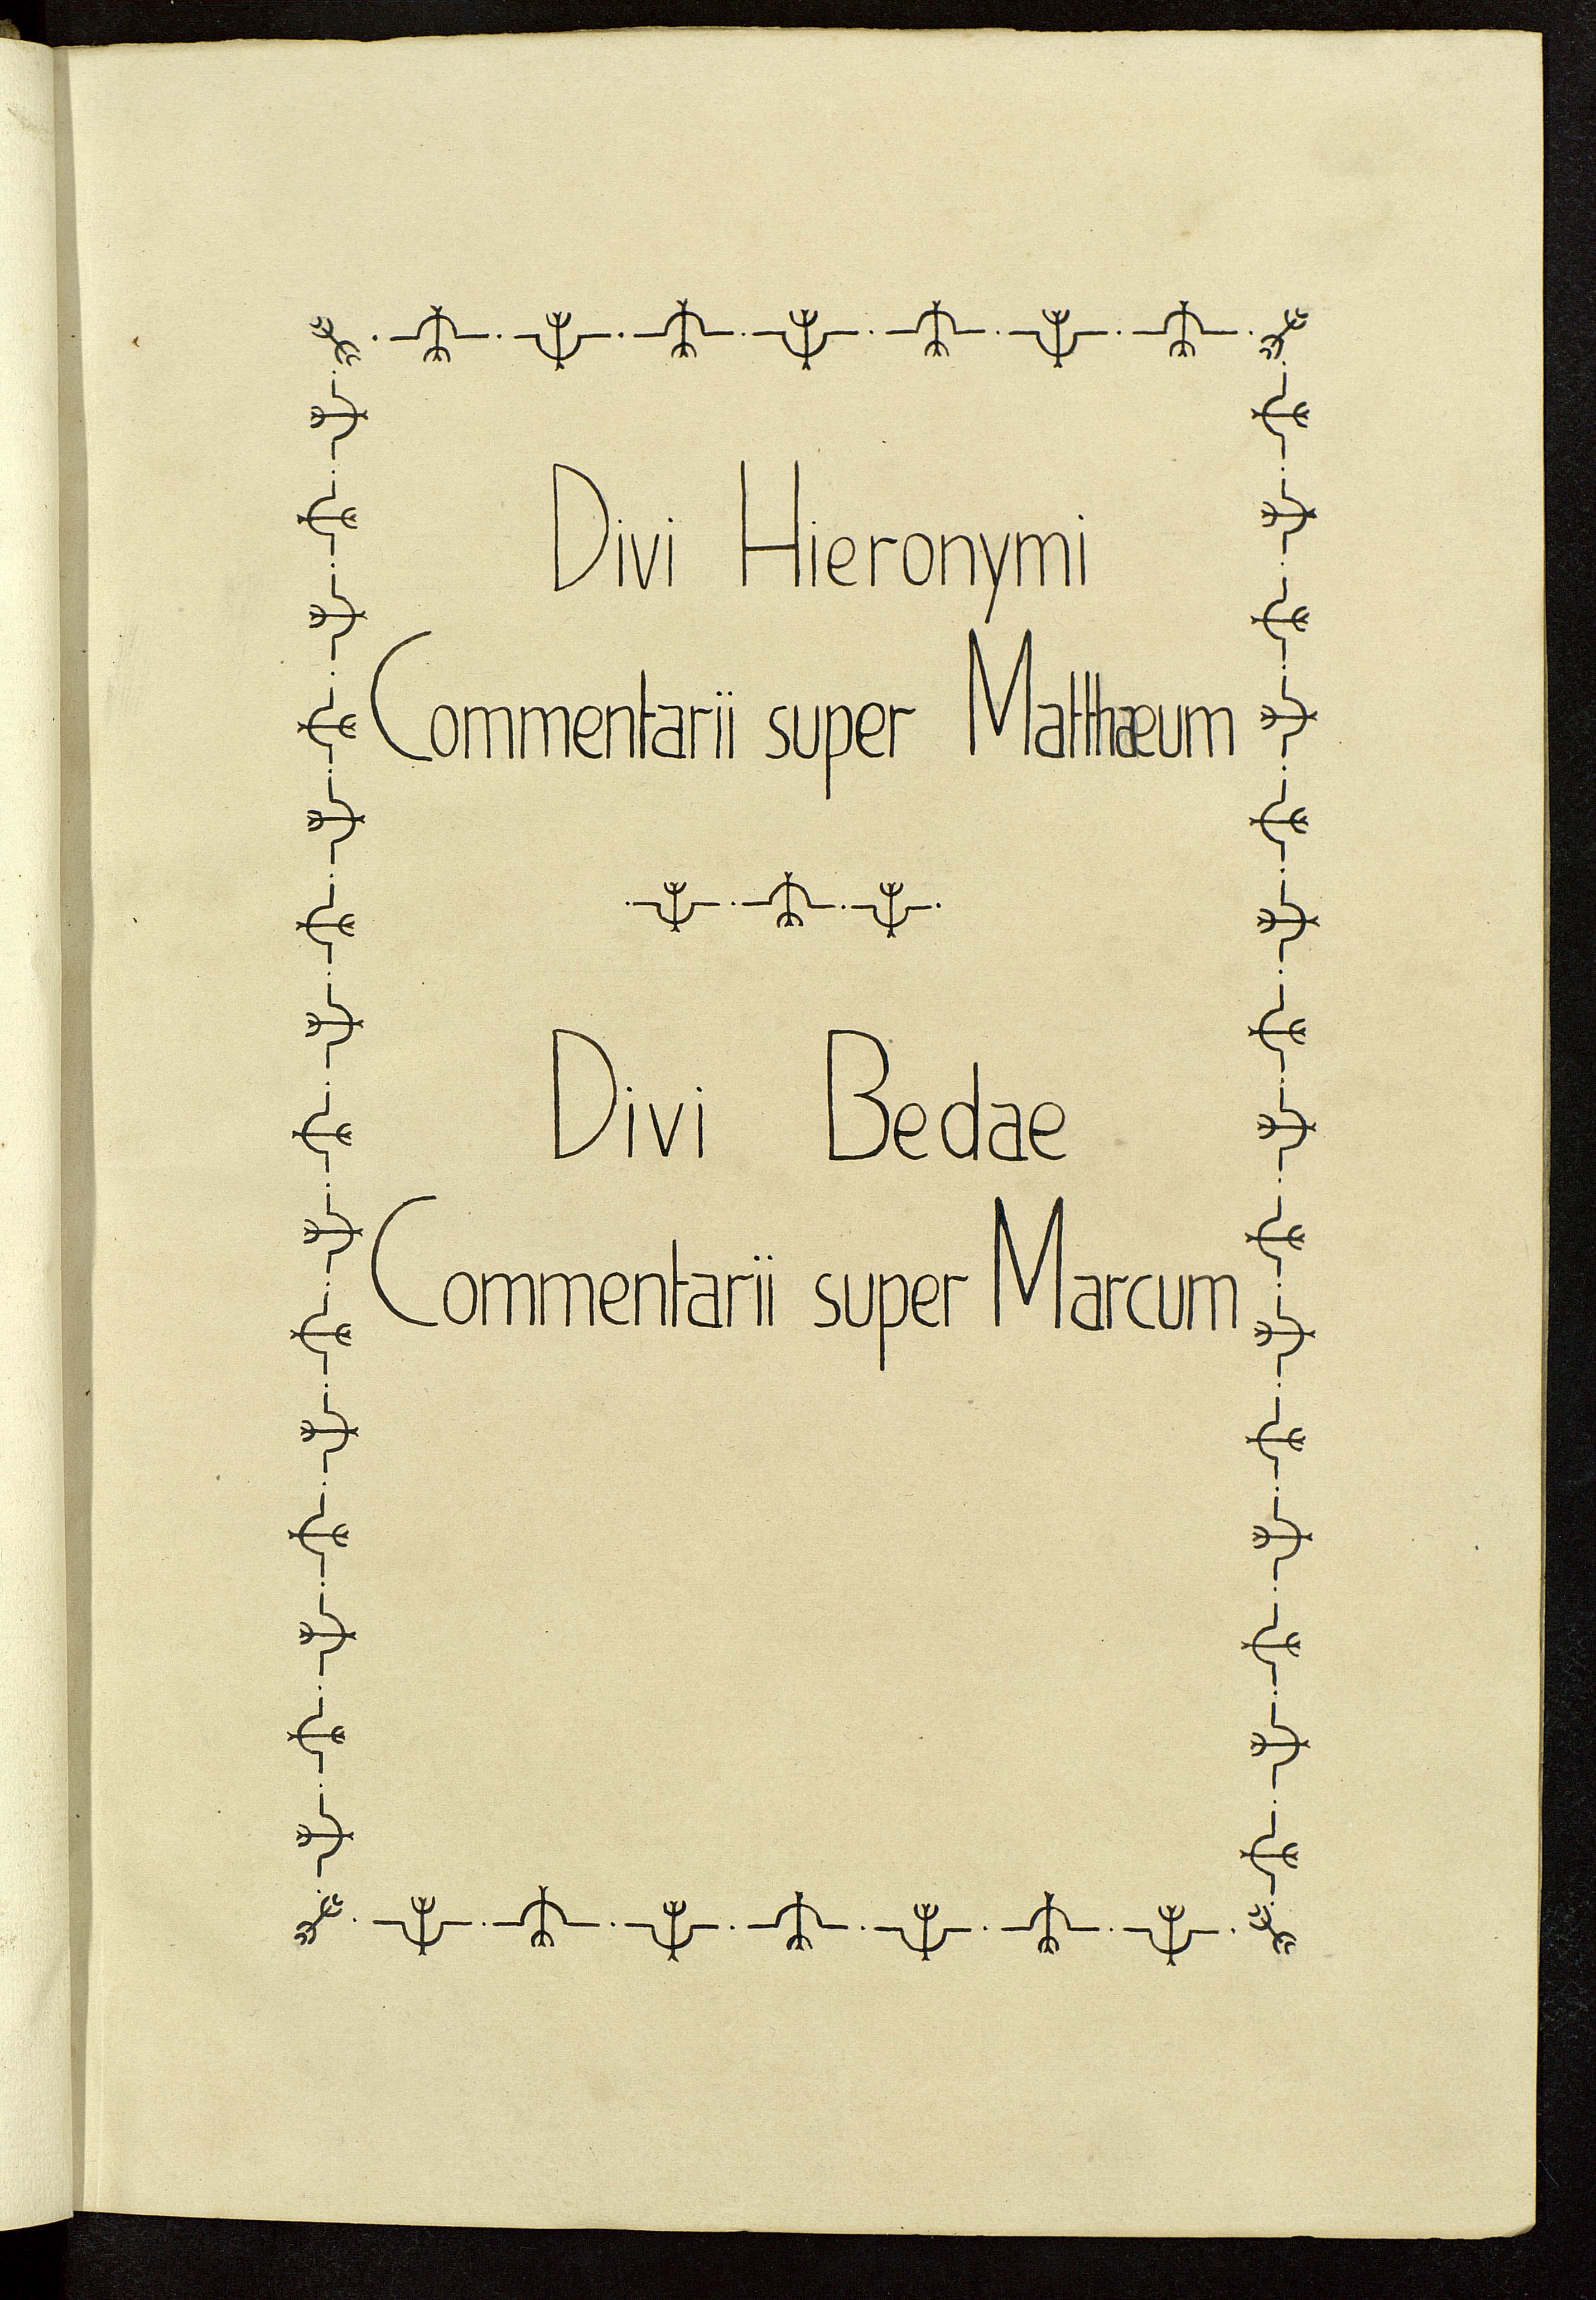 Divi Hieronymi
Commentarii super Matthæum
Divi Bedae
Commentarii super Marcum